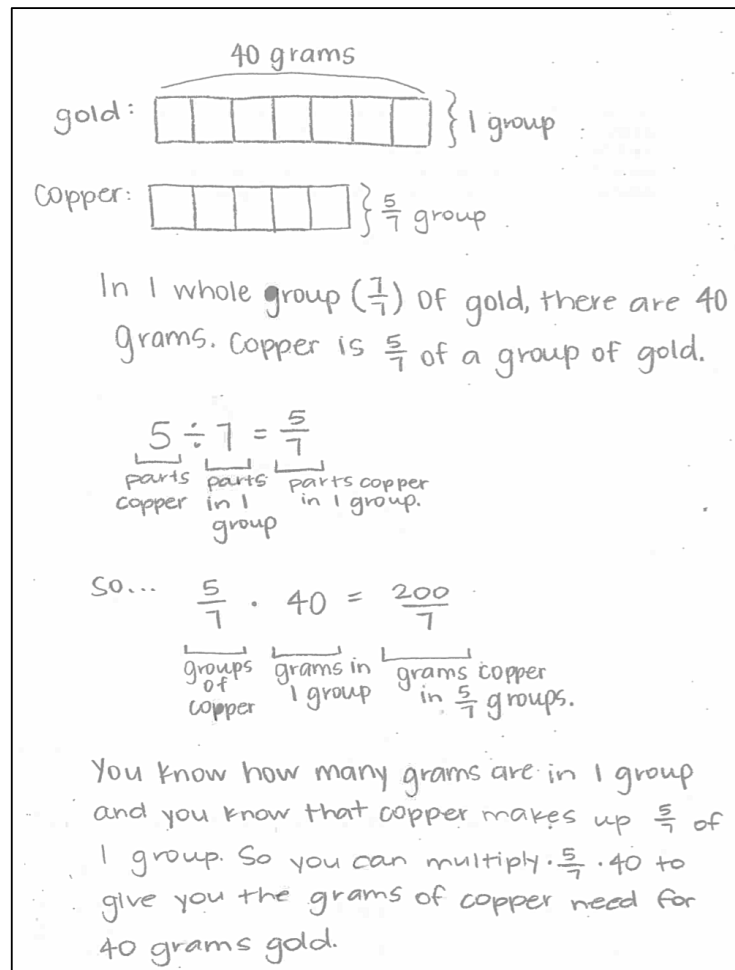 40 grams
gold: } 1 group
copper: } 5/7 group
In 1 whole group (7/7) of gold, there are 40
grams. Copper is 5/7 of a group of gold.
5 ÷ 7 = 5/7
parts parts parts copper
copper in 1 in 1 group.
group
So... 5/7 · 40 = 200/7
groups grams in grams copper
of 1 group in 5/7 groups.
copper
You know how many grams are in 1 group
and you know that copper makes up 5/7 of
1 group. So you can multiply · 5/7 · 40 to
give you the grams of copper need for
40 grams gold.